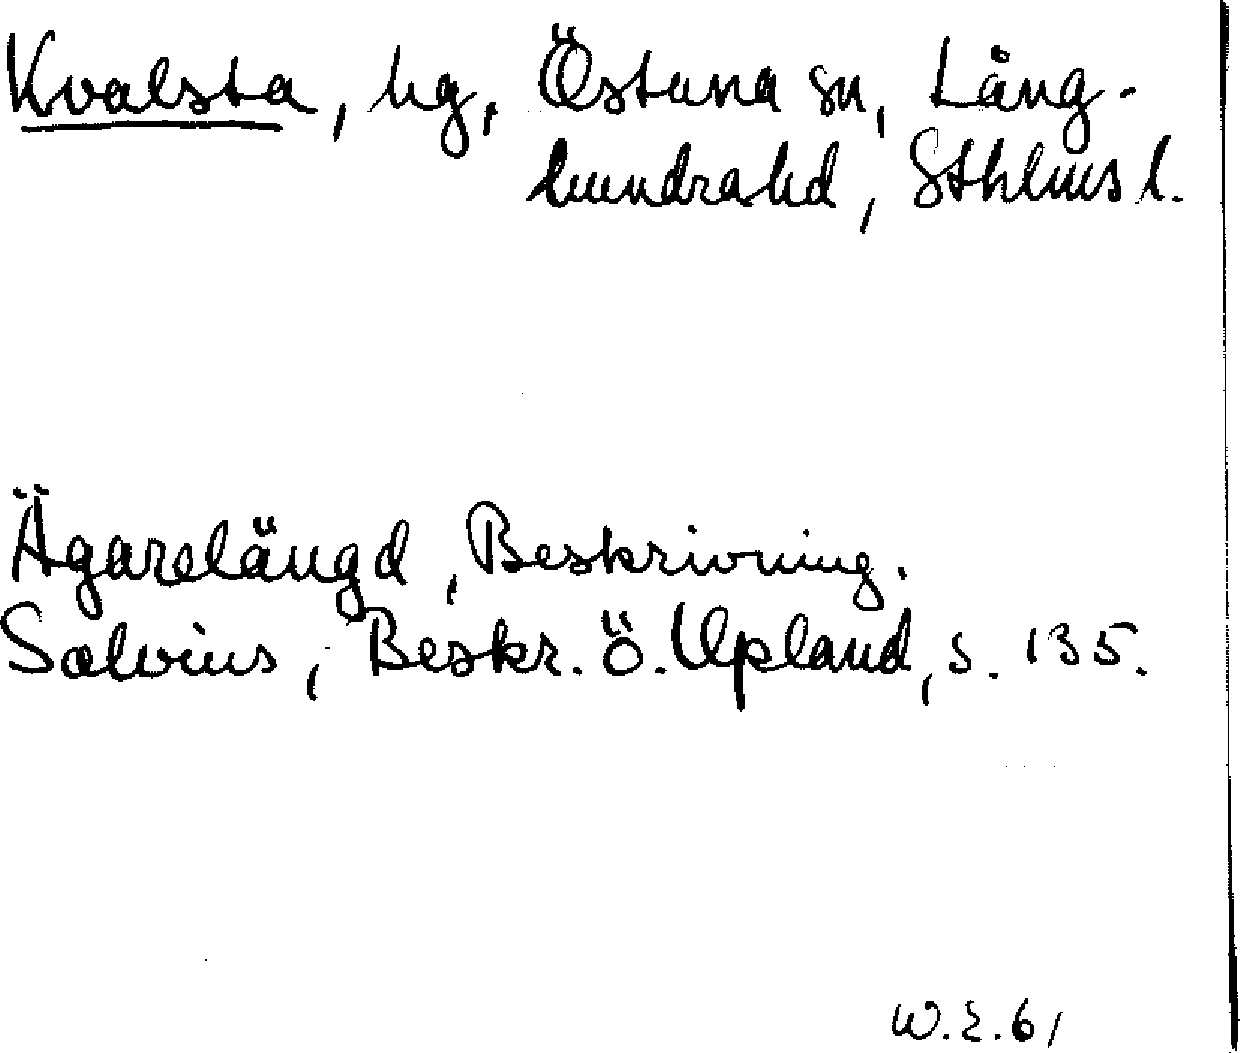 Kvalsta, hg, Östuna sn, Lång-
hundrahd, Sthlms l.
Ägarelängd, Beskrivning.
Salvius, Beskr. ö. Upland, s. 135.
W.E.61